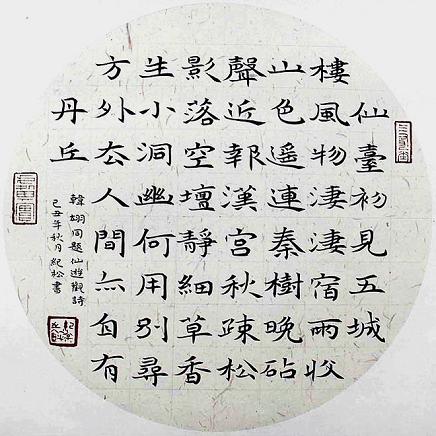 仙臺初見五城
樓風物淒淒宿雨收
山色遥連秦樹晚砧
聲近報漢宮秋疎松
影落空壇靜細草香
生小洞幽何用別尋
方外去人間亦自有
丹丘
韓翃同題仙遊觀詩
己丑年秋月紀松書